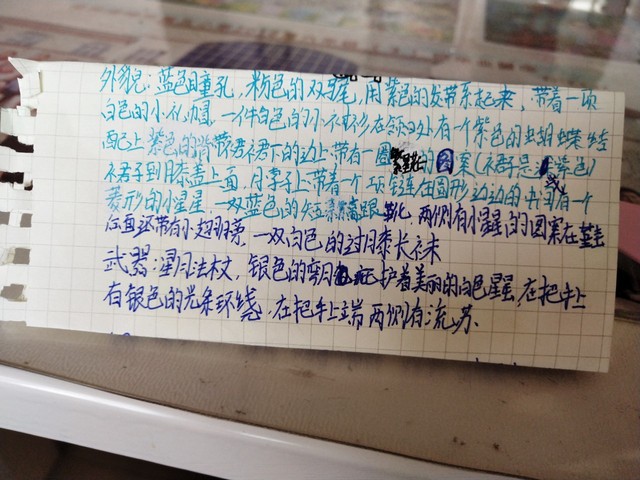 外貌：蓝色瞳孔，粉色的双马尾，用紫色的发带系起来，带着一项
白色的小礼帽，一件白色的小衬衫在领口处有一个紫色的蝴蝶结
配上紫色的背带裙裙下的边上带有一圈的图案（裙是紫色）
裙子到膝盖上面，脖子上带着一个项链在圆形边边的内有一个
菱形的小星星一双蓝色的短高跟靴，两侧有小星的图案在
后面还带有小翅膀，一双白色的过膝长袜
武器：星月法杖，银色的弯月护着美丽的白色星星，在把手上
有银色的光条环绕，在把手上端两侧有流苏、